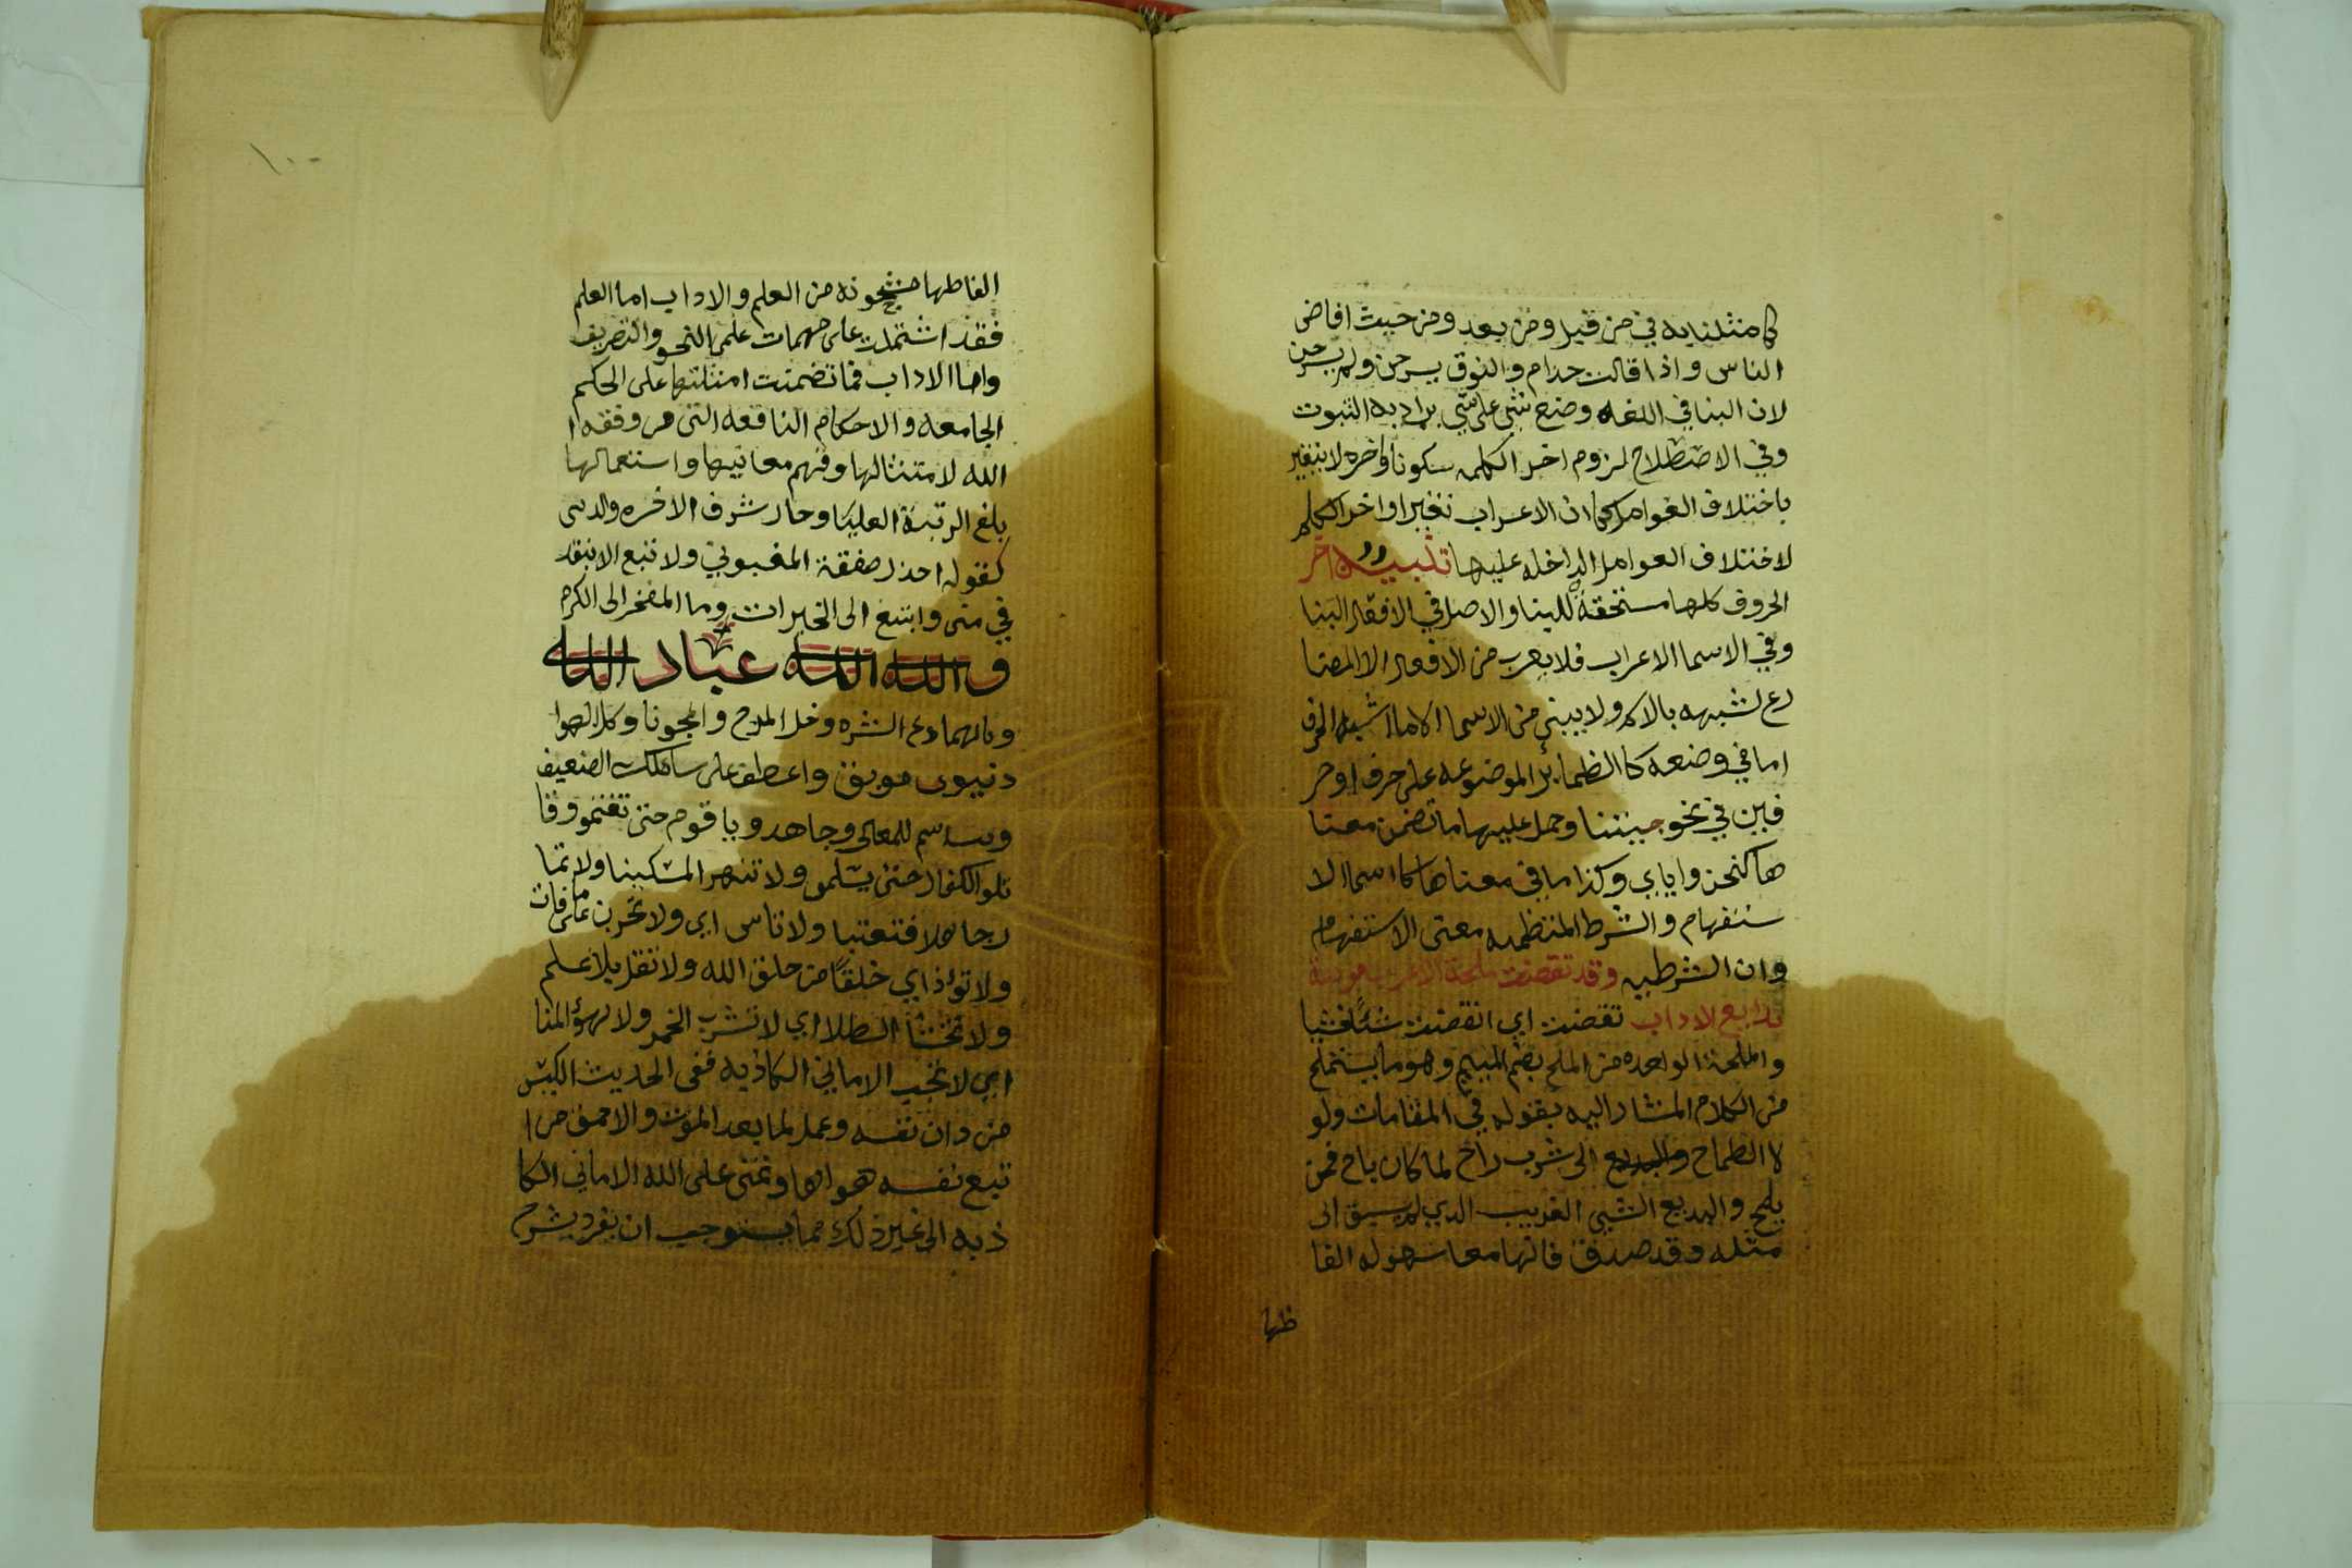 كما مثلنا به في من قبل ومن بعد ومن حيث افاض
الناس واذا قالت حذام والنوق يسرحن ولم يرحن
لان البنا في اللغه وضع شي على شي يراد به الثبوت
وفي الاصطلاح لزوم اخر الكلمه سكونا لا يتغير
باختلاف العوامل كما ان الاعراب تغيير اواخر الكلم
لاختلاف العوامل الداخله عليها تنبيه اخر
الحروف كلها مستحقة للبنا والاصل في الافعال البنا
وفي الاسما الاعراب فلا يعرب من الافعال الا المضا
رع لشبهه بالاسم ولا يبني من الاسما الا ما اشبه الحرف
اما في وضعه كا الظمائر الموضوعه على حرف او حر
فين في نحو جيتنا وحمل عليها ما تضمن معنا
ها كنحن واياي وكذا ما في معناها كاسما الا
ستفهام والشرط المتظمنه معنى الاستفهام
وان الشرطيه وقد تقضت ملحة الاعراب مودعة
بدايع الاداب تقضت اي انقضت شيًا فشيا
والملحة الواحده من الملح بضم الميم وهو ما يستملح
من الكلام المشار اليه بقوله في المقامات ولو
لا الطماح الى شرب راح لما كان باح فمن
بلح والبديع الشي الغريب الذي لم يسبق الى
مثله وقد صدق فانها مع سهوله الفا
ظها
١٠٠
الفاظها مشحونه من العلم والاداب اما العلم
فقد اشتملت على مهمات علمى النحو والتصريف
واما الاداب فما تضمنت امثلتها على الحكم
الجامعه والاحكام النافعه التى من وفقه ا
الله لامتثالها وفهم معانيها واستعمالها
بلغ الرتبة العليا وحاز شرف الاخره والدنى
كقوله احذر صفقة المغبون ولا تبع الا بنقد
في منى وابتغ الى الخيرات وما المفخر الى الكرم
و الله الله عباد الله
دع الشره وخل المزح والمجونا
دنيوى موبق واعطف على سائلك الضعيف
للمعالي وجاهدو يا قوم حتى تغنمو وقا
تلو الكفار حتى يسلمو ولا تنهر المسكينا ولا تما
ر جاهلا فتتعبا ولا تاس اي ولا تحزن على ما فات
ولا تؤذ اي خلقًا من خلق الله ولا تقل بلا علم
ولا تحتسا الطلا اي لا تشرب الخمر المنا
اي لا تحب الاماني الكاذبه ففى الحديث الكيس
من دان نفسه وعمل لما بعد الموت والاحمق من ا
تبع نفسه هواها وتمنى على الله الاماني الكا
ذبه الى غير ذلك مما يستوجب ان يفرد بشرح